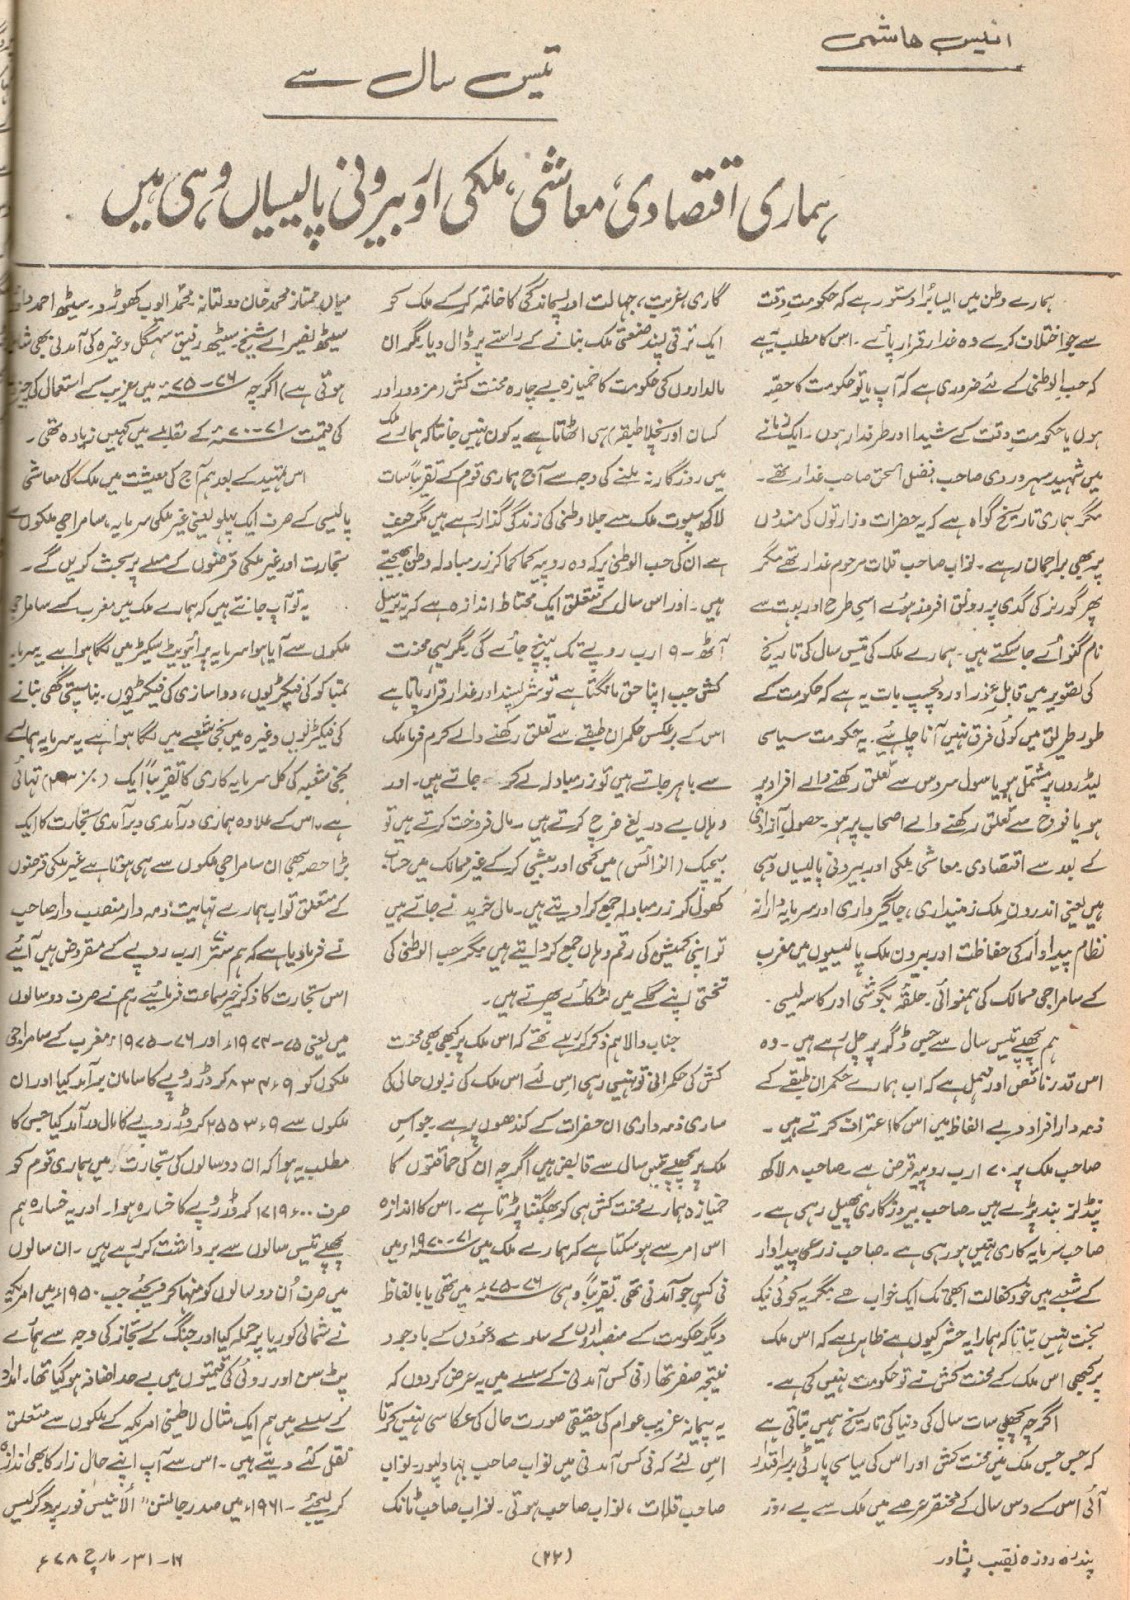 انیس ہاشمی
تیس سال سے
ہماری اقتصادی، معاشی، ملکی اور بیرونی پالیسیاں وہی ہیں
ہمارے وطن میں ایسا برا دستور ہے کہ حکومتِ وقت
سے جو اختلاف کرے وہ غدار قرار پائے۔ اس کا مطلب یہ ہے
کہ حب الوطنی کے لئے ضروری ہے کہ آپ یا تو حکومت کا حصہ
ہوں یا حکومتِ وقت کے شیدا اور طرفدار ہوں۔ ایک زمانے
میں شہید سہروردی صاحب، فضل الحق صاحب غدار تھے۔
مگر ہماری تاریخ گواہ ہے کہ یہ حضرات وزارتوں کی مسندوں
پر بھی براجمان رہے۔ نواب صاحب قلات مرحوم غدار تھے مگر
پھر گورنر کی گدی پہ رونق افروز ہوئے اسی طرح اور بہت سے
نام گنوائے جا سکتے ہیں۔ ہمارے ملک کی تیس سال کی تاریخ
کی تصویر میں قابلِ غور اور دلچسپ بات یہ ہے کہ حکومت کے
طور طریق میں کوئی فرق نہیں آنا چاہیئے۔ یہ حکومت سیاسی
لیڈروں پر مشتمل ہو یا سول سروس سے تعلق رکھنے والے افراد پر
ہو یا فوج سے تعلق رکھنے والے اصحاب پر ہو۔ حصولِ آزادی
کے بعد سے اقتصادی۔ معاشی ملکی اور بیرونی پالیسیاں وہی
ہیں یعنی اندرونِ ملک زمینداری، جاگیرداری اور سرمایہ دارانہ
نظام پیداوار کی حفاظت اور بیرون ملک پالیسیوں میں مغرب
کے سامراجی ممالک کی ہمنوائی۔ حلقہ بگوشی اور کاسہ لیسی۔
ہم پچھلے تیس سال سے جس ڈگر پر چل رہے ہیں۔ وہ
اس قدر ناقص اور مہمل ہے کہ اب ہمارے حکمران طبقے کے
ذمہ دار افراد دبے الفاظ میں اس کا اعتراف کرتے ہیں۔
صاحب ملک پر ۷۰ ارب روپیہ قرض ہے۔ صاحب ۸ لاکھ
تنڈلز بند پڑے ہیں۔ صاحب بیروزگاری پھیل رہی ہے۔
صاحب سرمایہ کاری نہیں ہو رہی ہے۔ صاحب زرعی پیداوار
کے شعبے میں خود کفالت ابھی تک ایک خواب ہے مگر یہ کوئی نیک
بخت نہیں بتاتا کہ ہمارا یہ حشر کیوں ہے ظاہر ہے کہ اس ملک
پر کبھی اس ملک کے محنت کش نے تو حکومت نہیں کی ہے۔
اگرچہ پچھلی سات سال کی دنیا کی تاریخ ہمیں بتاتی ہے
کہ جس جس ملک میں محنت کش اور اس کی سیاسی پارٹی برسرِ اقتدار
آئی اس کے دس سال کے مختصر عرصے میں ملک سے بے روز
گاری، غربت، جہالت اور پسماندگی کا خاتمہ کرکے ملک کو
ایک ترقی پسند صنعتی ملک بنانے کے راستے پر ڈال دیا مگر ان
مالداروں کی حکومت کا خمیازہ بے چارہ محنت کش (مزدور اور
کسان اور نچلا طبقہ) ہی اٹھاتا ہے یہ کون نہیں جانتا کہ ہمارے ملک
میں روزگار نہ ملنے کی وجہ سے آج ہماری قوم کے تقریباً سات
لاکھ سپوت ملک سے جلا وطنی کی زندگی گذار رہے ہیں مگر حیف
ہے ان کی حب الوطنی پر کہ وہ روپیہ کما کما کر زرِ مبادلہ وطن بھیجتے
ہیں۔ اور اس سال کے متعلق ایک محتاط اندازہ ہے کہ ترسیل
آٹھ۔۹ ارب روپے تک پہنچ جائے گی مگر یہی محنت
کش جب اپنا حق مانگتا ہے تو شر پسند اور غدار قرار پاتا ہے
اس کے برعکس حکمران طبقے سے تعلق رکھنے والے کرم فرما ملک
سے باہر جاتے ہیں تو زرِ مبادلہ لے کر جاتے ہیں۔ اور
وہاں بے دریغ خرچ کرتے ہیں۔ مال فروخت کرتے ہیں تو
بیجک (انوائس) میں کمی اور بیشی کرکے غیر ممالک میں حساب
کھول کر زرِ مبادلہ جمع کرا دیتے ہیں۔ مال خریدنے جاتے ہیں
تو اپنی کمیشن کی رقم وہاں جمع کروا دیتے ہیں مگر حب الوطنی کی
تختی اپنے گلے میں لٹکائے پھرتے ہیں۔
جناب والا ہم ذکر کر رہے تھے کہ اس ملک پر کبھی بھی محنت
کش کی حکمرانی تو نہیں رہی اس لئے اس ملک کی زبوں حالی کی
ساری ذمہ داری ان حضرات کے کندھوں پر ہے۔ جو اس
ملک پر پچھلے تیس سال سے قابض ہیں اگرچہ ان کی حماقتوں کا
خمیازہ ہمارے محنت کش ہی کو بھگتنا پڑتا ہے۔ اس کا اندازہ
اس امر سے ہو سکتا ہے کہ ہمارے ملک میں ۷۱۔۱۹۷۰ء میں
فی کس جو آمدنی تھی۔ تقریباً وہی ۷۶۔۷۵ء میں تھی یا بالفاظ
دیگر حکومت کے منصبداروں کے سارے دعووں کے باوجود
نتیجہ صفر تھا (فی کس آمدنی کے سلسلے میں یہ عرض کر دوں کہ
یہ پیمانہ غریب عوام کی حقیقی صورت حال کی عکاسی نہیں کرتا
اس لئے کہ فی کس آمدنی میں نواب صاحب بہاولپور۔ نواب
صاحب قلات، نواب صاحب ہوتی۔ نواب صاحب ٹانک
میاں ممتاز محمد خان دولتانہ۔ محمد ایوب کھوڑو۔ سیٹھ احمد داؤد
سیٹھ نصیر اے شیخ۔ سیٹھ رفیق سہگل وغیرہ کی آمدنی بھی شامل
ہوتی ہے) اگرچہ ۷۶۔۷۵ء میں غریب کے استعمال کی چیزوں
کی قیمت ۷۱۔۷۰ء کے مقابلے میں کہیں زیادہ تھی۔
اس تمہید کے بعد ہم آج کی معیشت میں ملک کی معاشی
پالیسی کے صرف ایک پہلو یعنی غیر ملکی سرمایہ، سامراجی ملکوں سے
تجارت اور غیر ملکی قرضوں کے مسئلے پر بحث کریں گے۔
یہ تو آپ جانتے ہیں کہ ہمارے ملک میں مغرب کے سامراجی
ملکوں سے آیا ہوا سرمایہ پرائیویٹ سیکٹر میں لگا ہوا ہے یہ سرمایہ
تمباکو کی فیکٹریوں، دوا سازی کی فیکٹریوں۔ بناسپتی گھی بنانے
کی فیکٹریوں وغیرہ میں نجی شعبے میں لگا ہوا ہے یہ سرمایہ ہمارے
نجی شعبہ کی کل سرمایہ کاری کا تقریباً ایک تہائی
ہے، اس کے علاوہ ہماری درآمدی و برآمدی تجارت کا ایک
بڑا حصہ بھی ان سامراجی ملکوں سے ہی ہوتا ہے غیر ملکی قرضوں
کے متعلق تو اب ہمارے نہایت ذمہ دار منصب دار صاحب
نے فرما دیا ہے کہ ہم ستر ارب روپے کے مقروض ہیں آئیے
اس تجارت کا ذکر خیر سماعت فرمائیے، ہم نے صرف دو سالوں
میں یعنی ۷۵۔۱۹۷۴ء اور ۷۶۔۱۹۷۵ء مغرب کے سامراجی
ملکوں کو ۸۳۴۶۹ کروڑ روپے کا سامان برآمد کیا اور ان
ملکوں سے ۲۵۵۳۶۹ کروڑ روپے کا مال درآمد کیا جس کا
مطلب یہ ہوا کہ ان دو سالوں کی تجارت میں ہماری قوم کو
صرف ۱۷۱۹۶۰۰ کروڑ روپے کا خسارہ ہوا۔ اور یہ خسارہ ہم
پچھلے تیس سالوں سے برداشت کر رہے ہیں۔ ان سالوں
میں صرف اُن دو سالوں کو منہا کر دیجئے جب ۱۹۵۰ء میں امریکہ
نے شمالی کوریا پر حملہ کیا اور جنگ کے تجاز کی وجہ سے ہمارے
پٹ سن اور روئی کی قیمتوں میں بے حد اضافہ ہو گیا تھا۔ امداد
کے سلسلے میں ہم ایک مثال لاطینی امریکہ کے ملکوں سے متعلق
نقل کئے دیتے ہیں۔ اس سے آپ اپنے حالِ زار کا بھی اندازہ
کر لیجئے۔ ۱۹۶۱ء میں صدر جانسن "الائینس فور پروگریس
پندرہ روزہ نقیب پشاور
(۲۲)
۱۶۔۳۱۔مارچ ۷۸ء